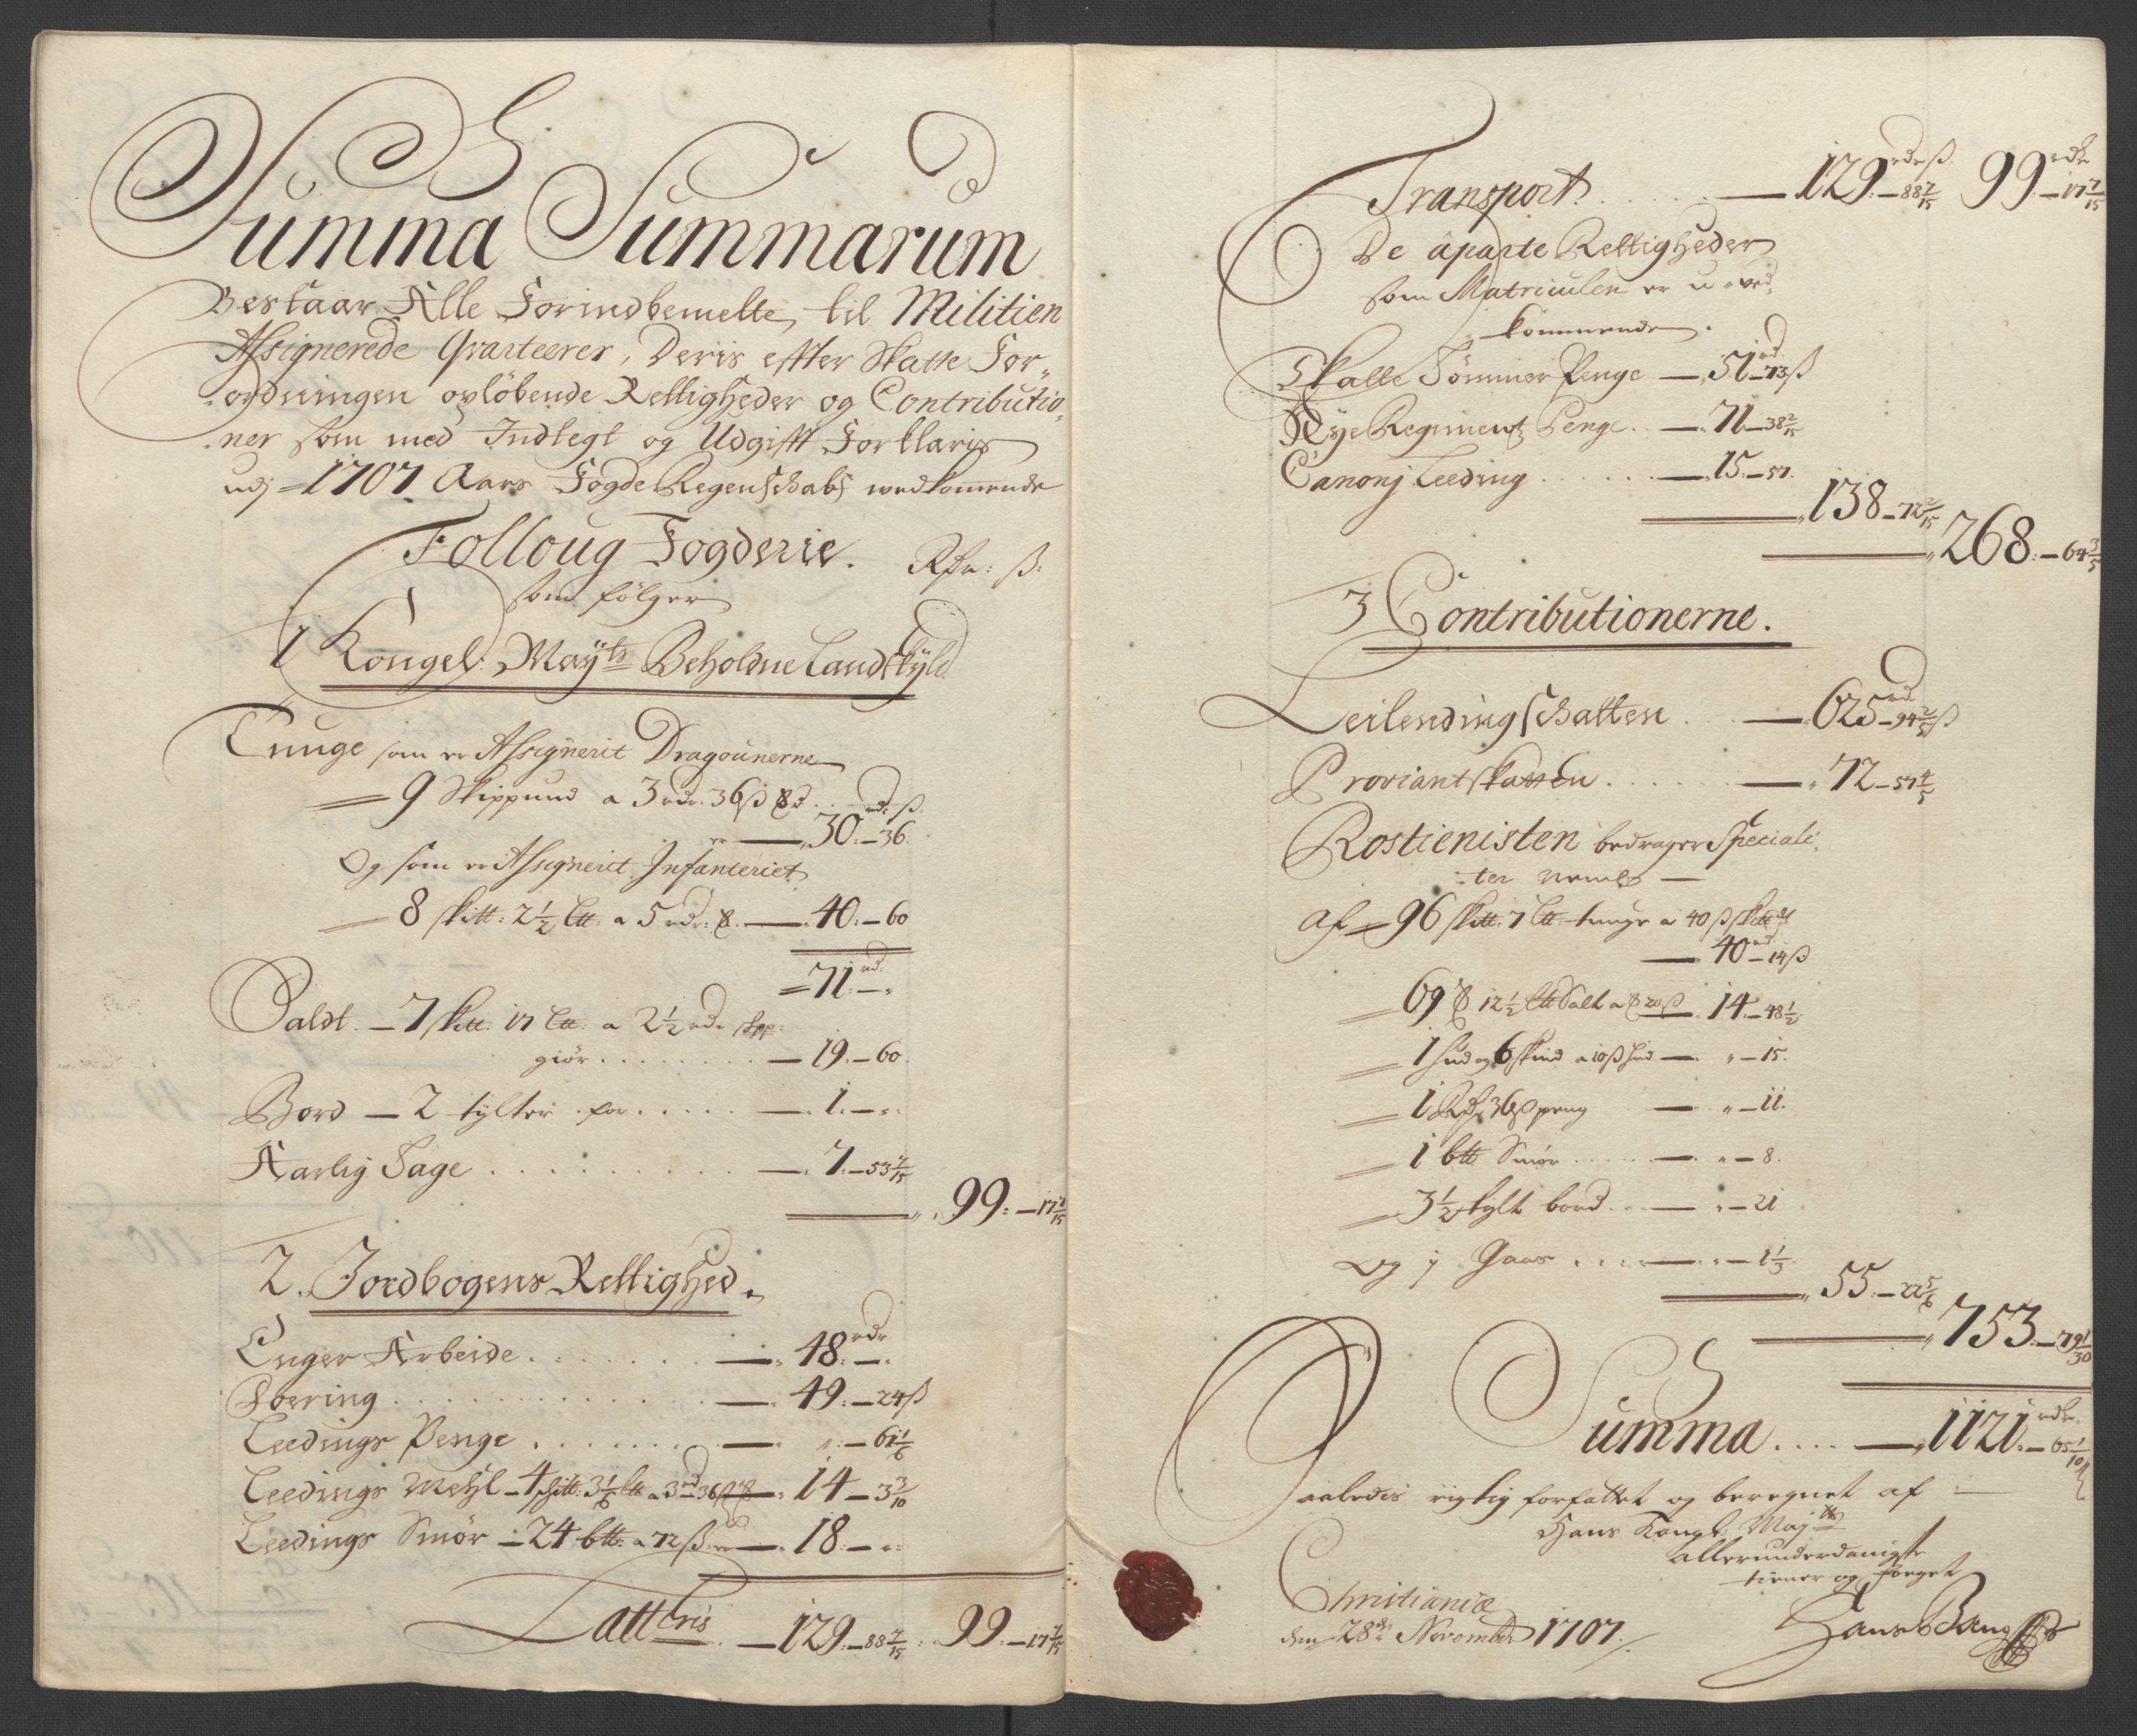 Summa Summarum
Bestaar Alle Forindbemelte, til Militien
Assignerede Qvarteerer, Deris effter Skatte For„
ordningen opløbende Rettigheder og Contributio„
ner som med Indtegt og Udgifft Forklaris
udj 1707 Aars Fogde Regenschabs wedkomende
Folloug Fogderie. Rdr: ß:
som følger
1 Kongel: Mayts Beholdne Landskyld
Tunge som er Assignerit Dragounerne
9 Skippund a 3 rdr. 36 ß
rd: ß
30 – 36
Og som er Assignerit Infanteriet
8 skt: 2½ Ltt a 5 rdr: 40: – 60
71 rd: – „
Saldt – 7 skt: 17 Ltt: a 2½ rdr
giør 19. – 60
Bord – 2 tylter for 1. – „
Aarlig Sage 7. – 53 7/15
99: – 17 7/15
2. Jordbogens Rettighed.
Enger Arbeide 48 rdr: – „
Foering 49: – 24 ß
Leedings Penge „: – 61 1/6
Leedings Mehl – 4 skt: 3 1/6 Ltt a 3 rd 36 ß 14 – 3 3/10
Leedings Smør – 24 btt: a 72 ß 18 – „
Latteris 129: – 88 7/15 99. – 17 7/15
Transport 129 rdr – 88 7/15 ß 99 rdr – 17 7/15
De aparte Rettigheder
som Matriculen er u„ved„
kommende.
Skatte Tømmer Penge 51 rd – 73 ß
Nye Regiments Penge 71 – 38 2/15
Canonj Leeding 15. – 57.
138 – 72 2/15
268. – 64 3/5
3 Contributionerne.
Leilendingschatten 625 rd – 94 2/5 ß
Proviantskatten 72 – 57 4/5
Rostienisten bedrager Speciali„
ter nembl
Af 96 skt: 7 Ltt tunge a 40 ß
40 rd – 14 ß
69 12½ Ltt Salt a 20 ß 14 – 48½
1 hud og 6 skind a 10 ß hud „ – 15.
1 Rd 36 ß peng „ – 11.
1 btt Smør „ – 8.
3½ tylt bord „ – 21
Og j Gaas „ – 1 1/3
55. – 22 5/6
753 – 79 1/30
Summa 1121 rdr – 65 1/10 ß
Saaledis rigtig forfattet og beregnet af
Hans Kongl: Mayts
allerunderdanigste
tiener og foeget
Christiania
den 28de November 1707. Hans Bang